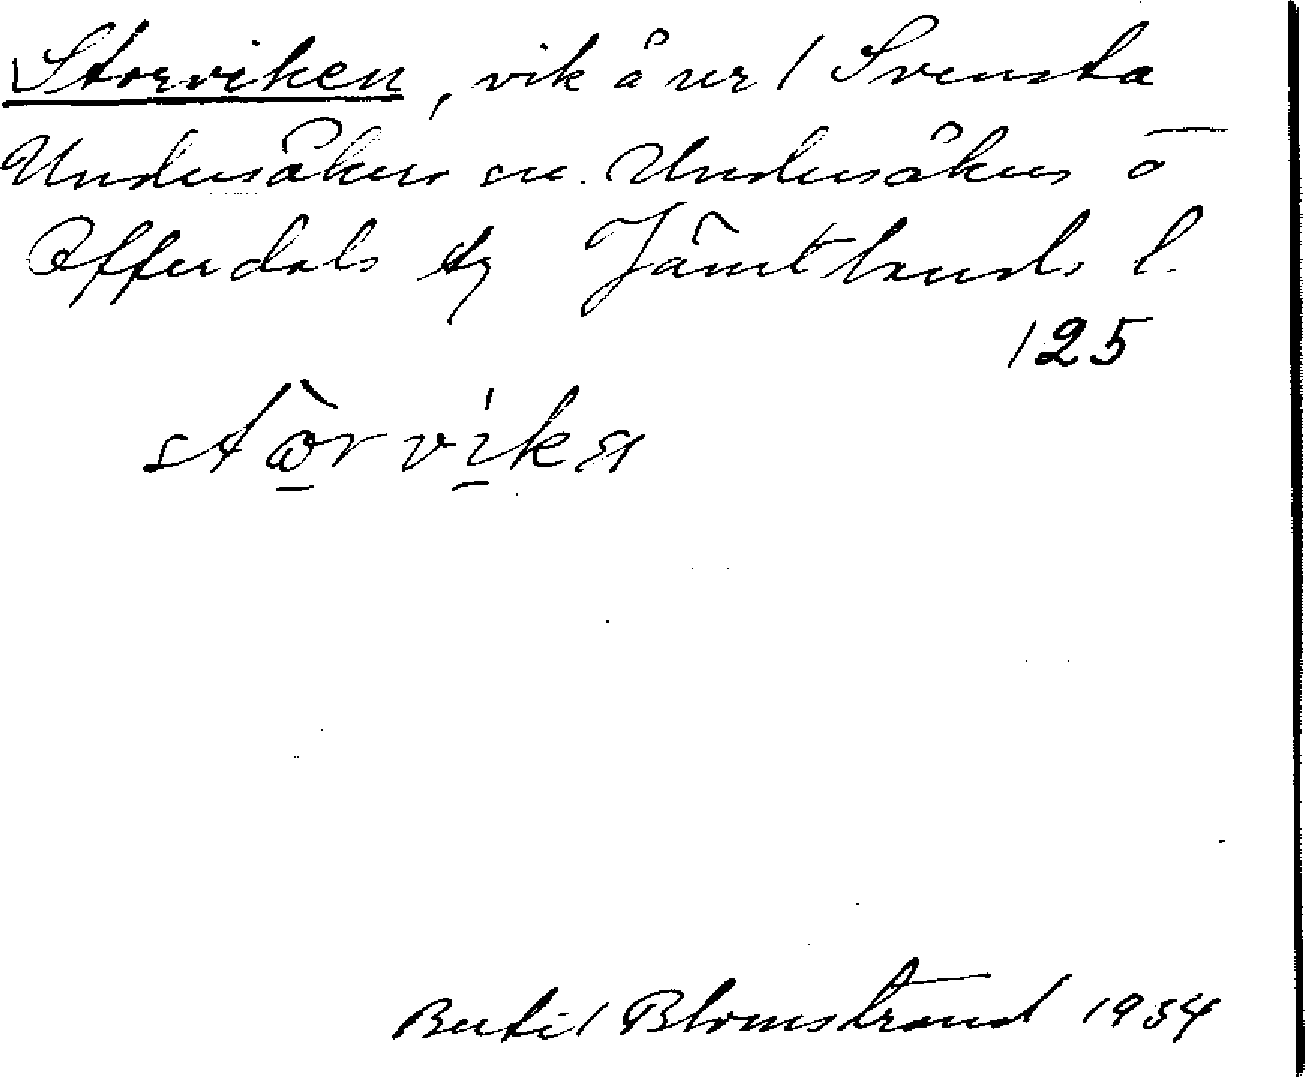 Storviken, vik å nr 1 Svensta
Undersåkers sn. Undersåkers o
Offerdals tg Jämtlands l.
125
Bertil Blomstrand 1934